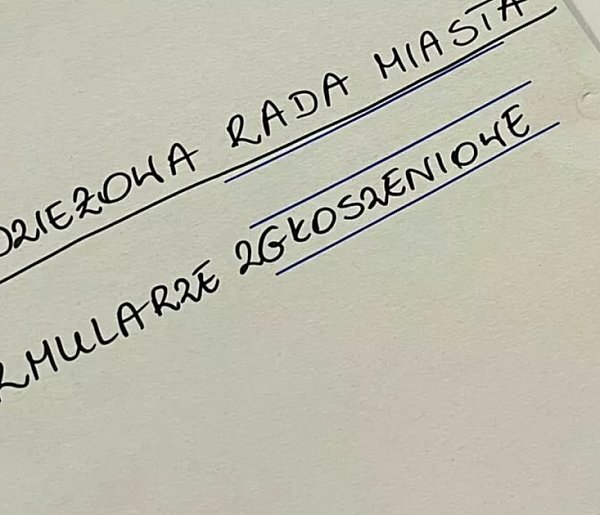 DZIEŻOWA RADA MIASTA
RMULARZE ZGŁOSZENIOWE